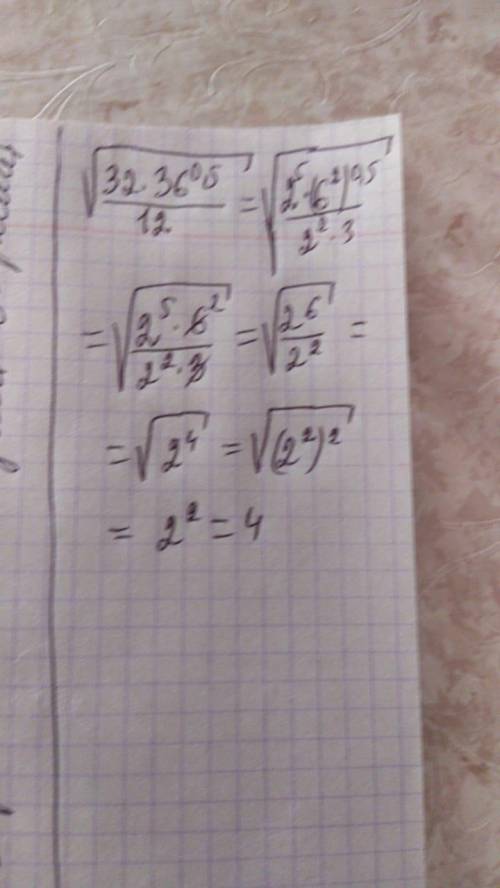 √(32·36^0,5 / 12) = √(2^5·(6^2)^0,5 / 2^2·3)
= √(2^5·6^2 / 2^2·3) = √(2^6 / 2^2) =
= √(2^4) = √((2^2)^2)
= 2^2 = 4